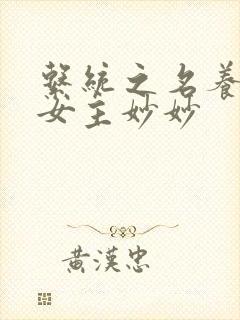 繫統之名養
女主妙妙
黃漢忠